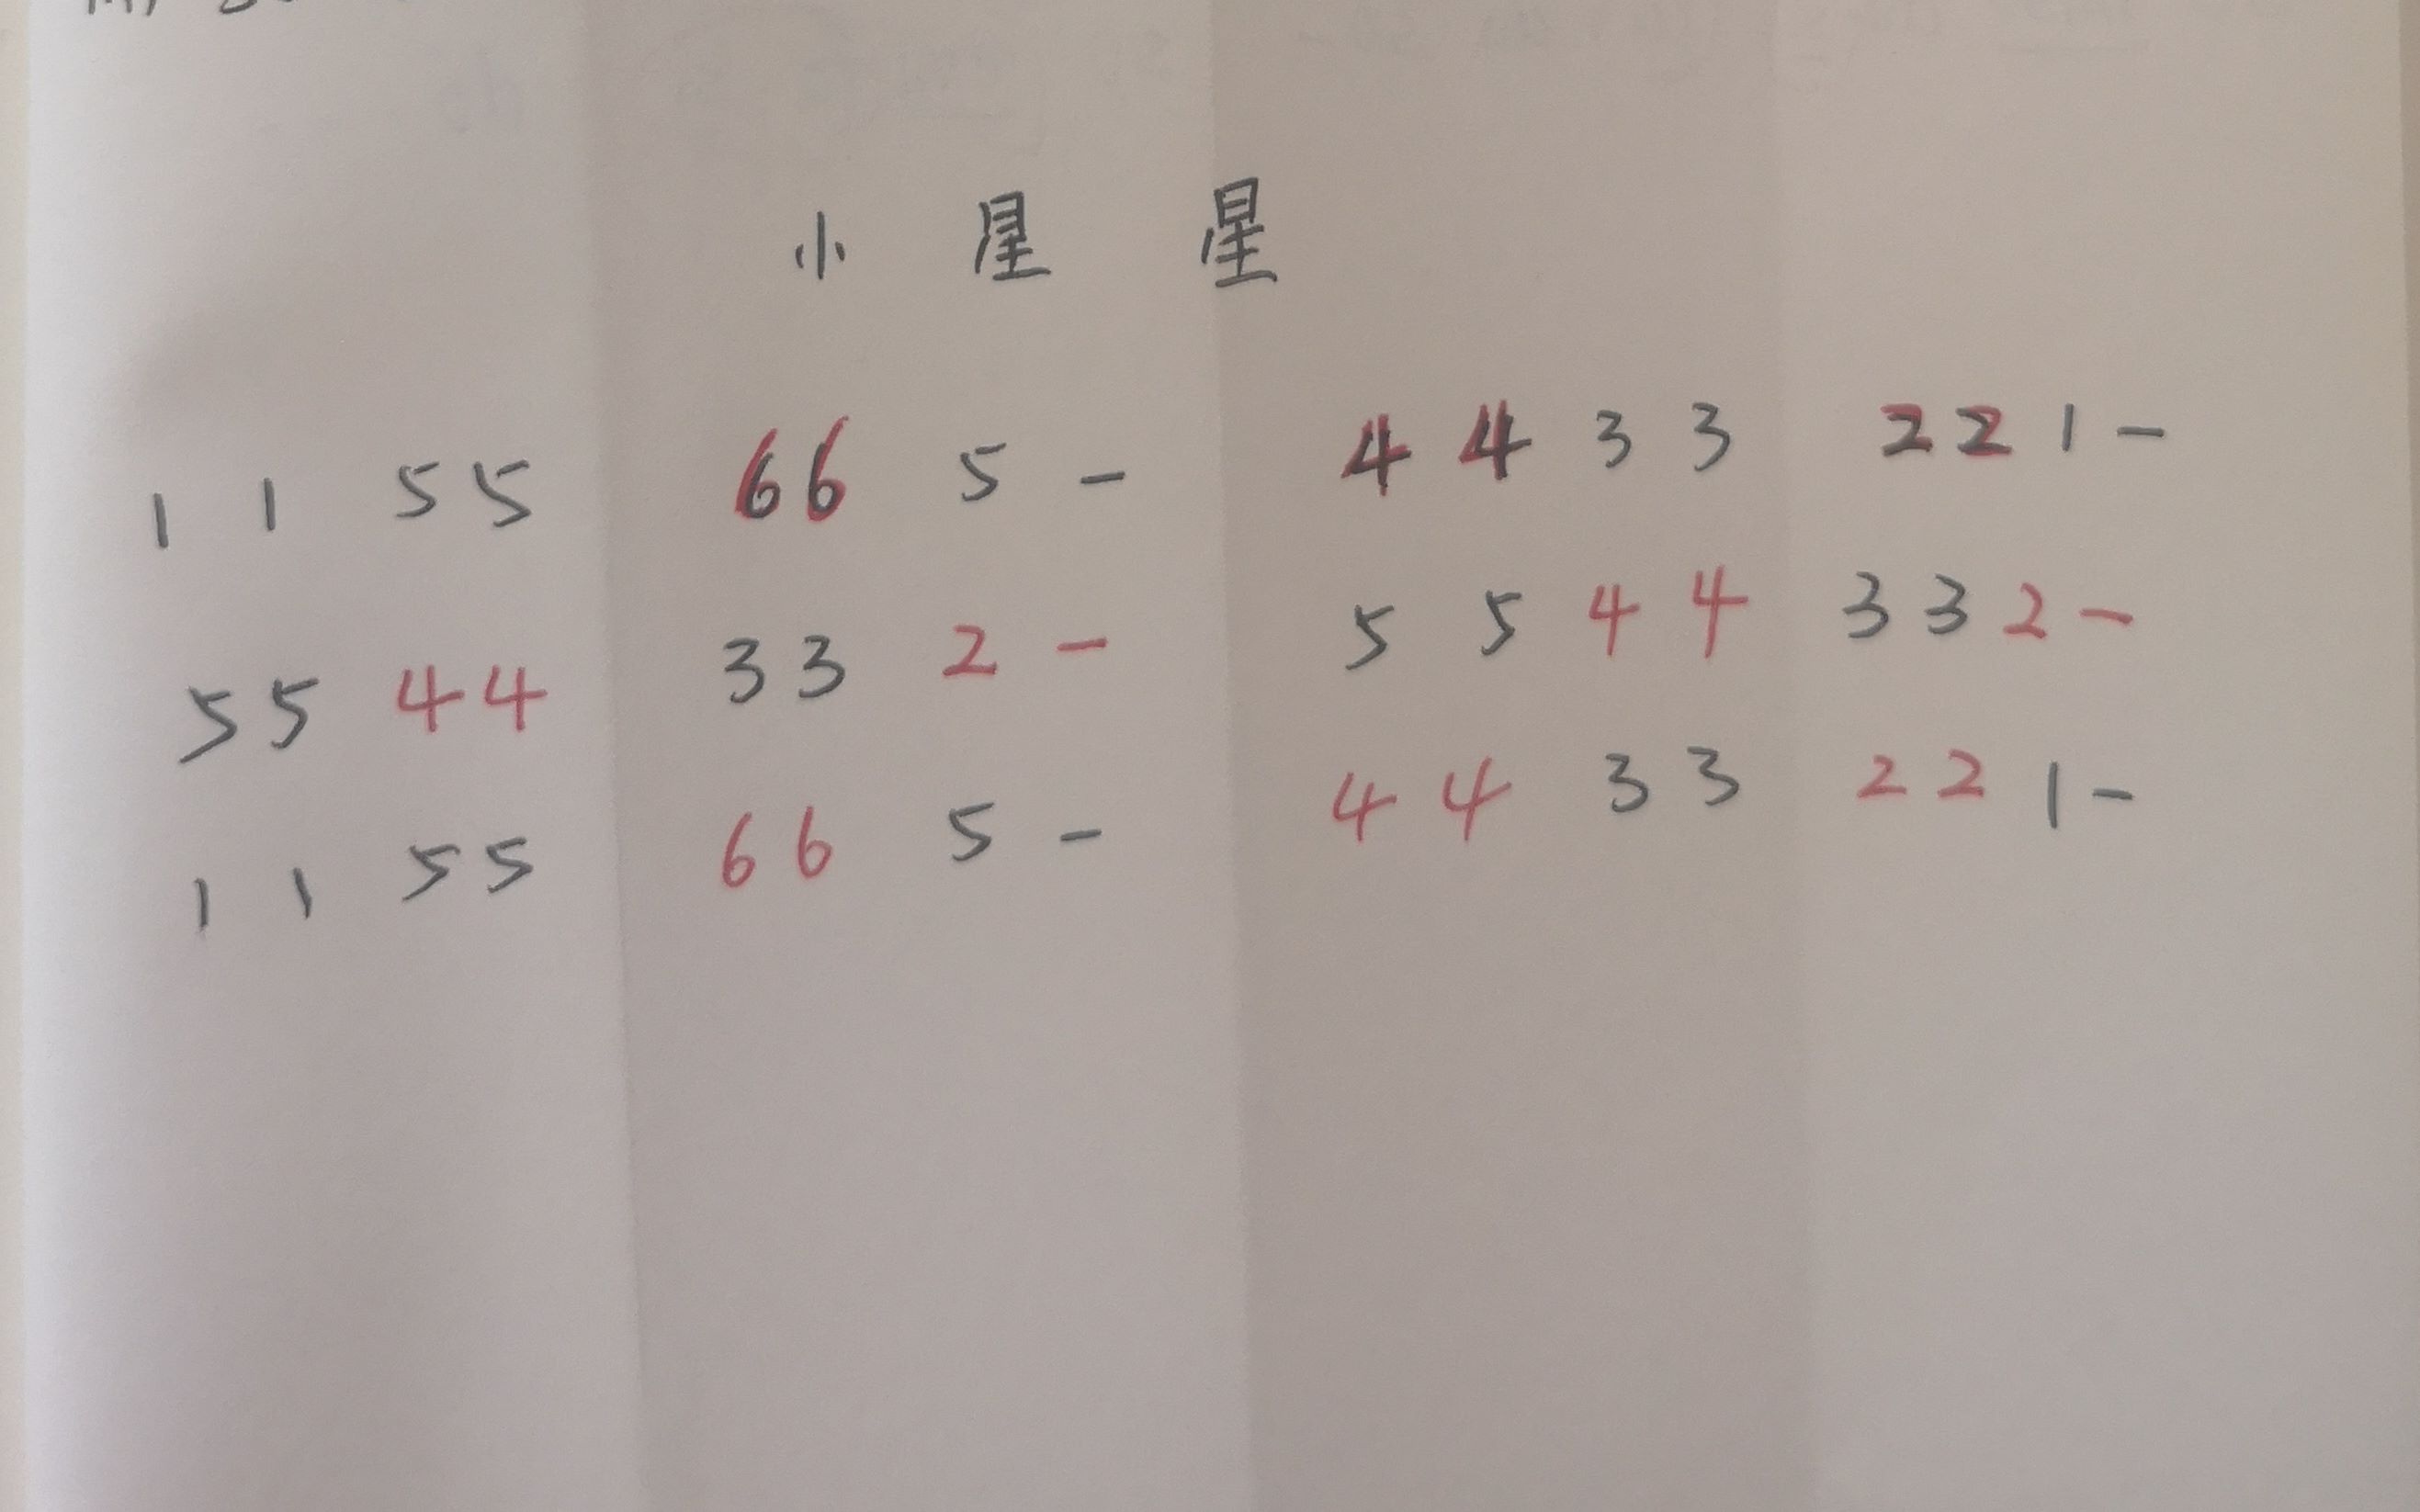 小星星
1 1 5 5 6 6 5 - 4 4 3 3 2 2 1 -
5 5 4 4 3 3 2 - 5 5 4 4 3 3 2 -
1 1 5 5 6 6 5 - 4 4 3 3 2 2 1 -